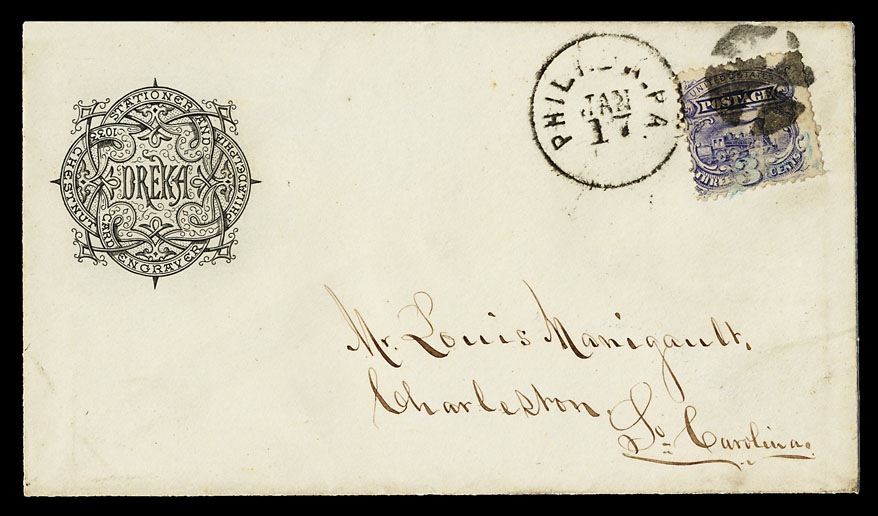 STATIONER AND
CARD ENGRAVER
1033 CHESTNUT
PHILADELPHIA
DREKA
PHILAD'A. PA.
JAN
17
UNITED STATES
POSTAGE
THREE 3 CENTS
Mr. Louis Manigault.
Charleston,
So. Carolina.